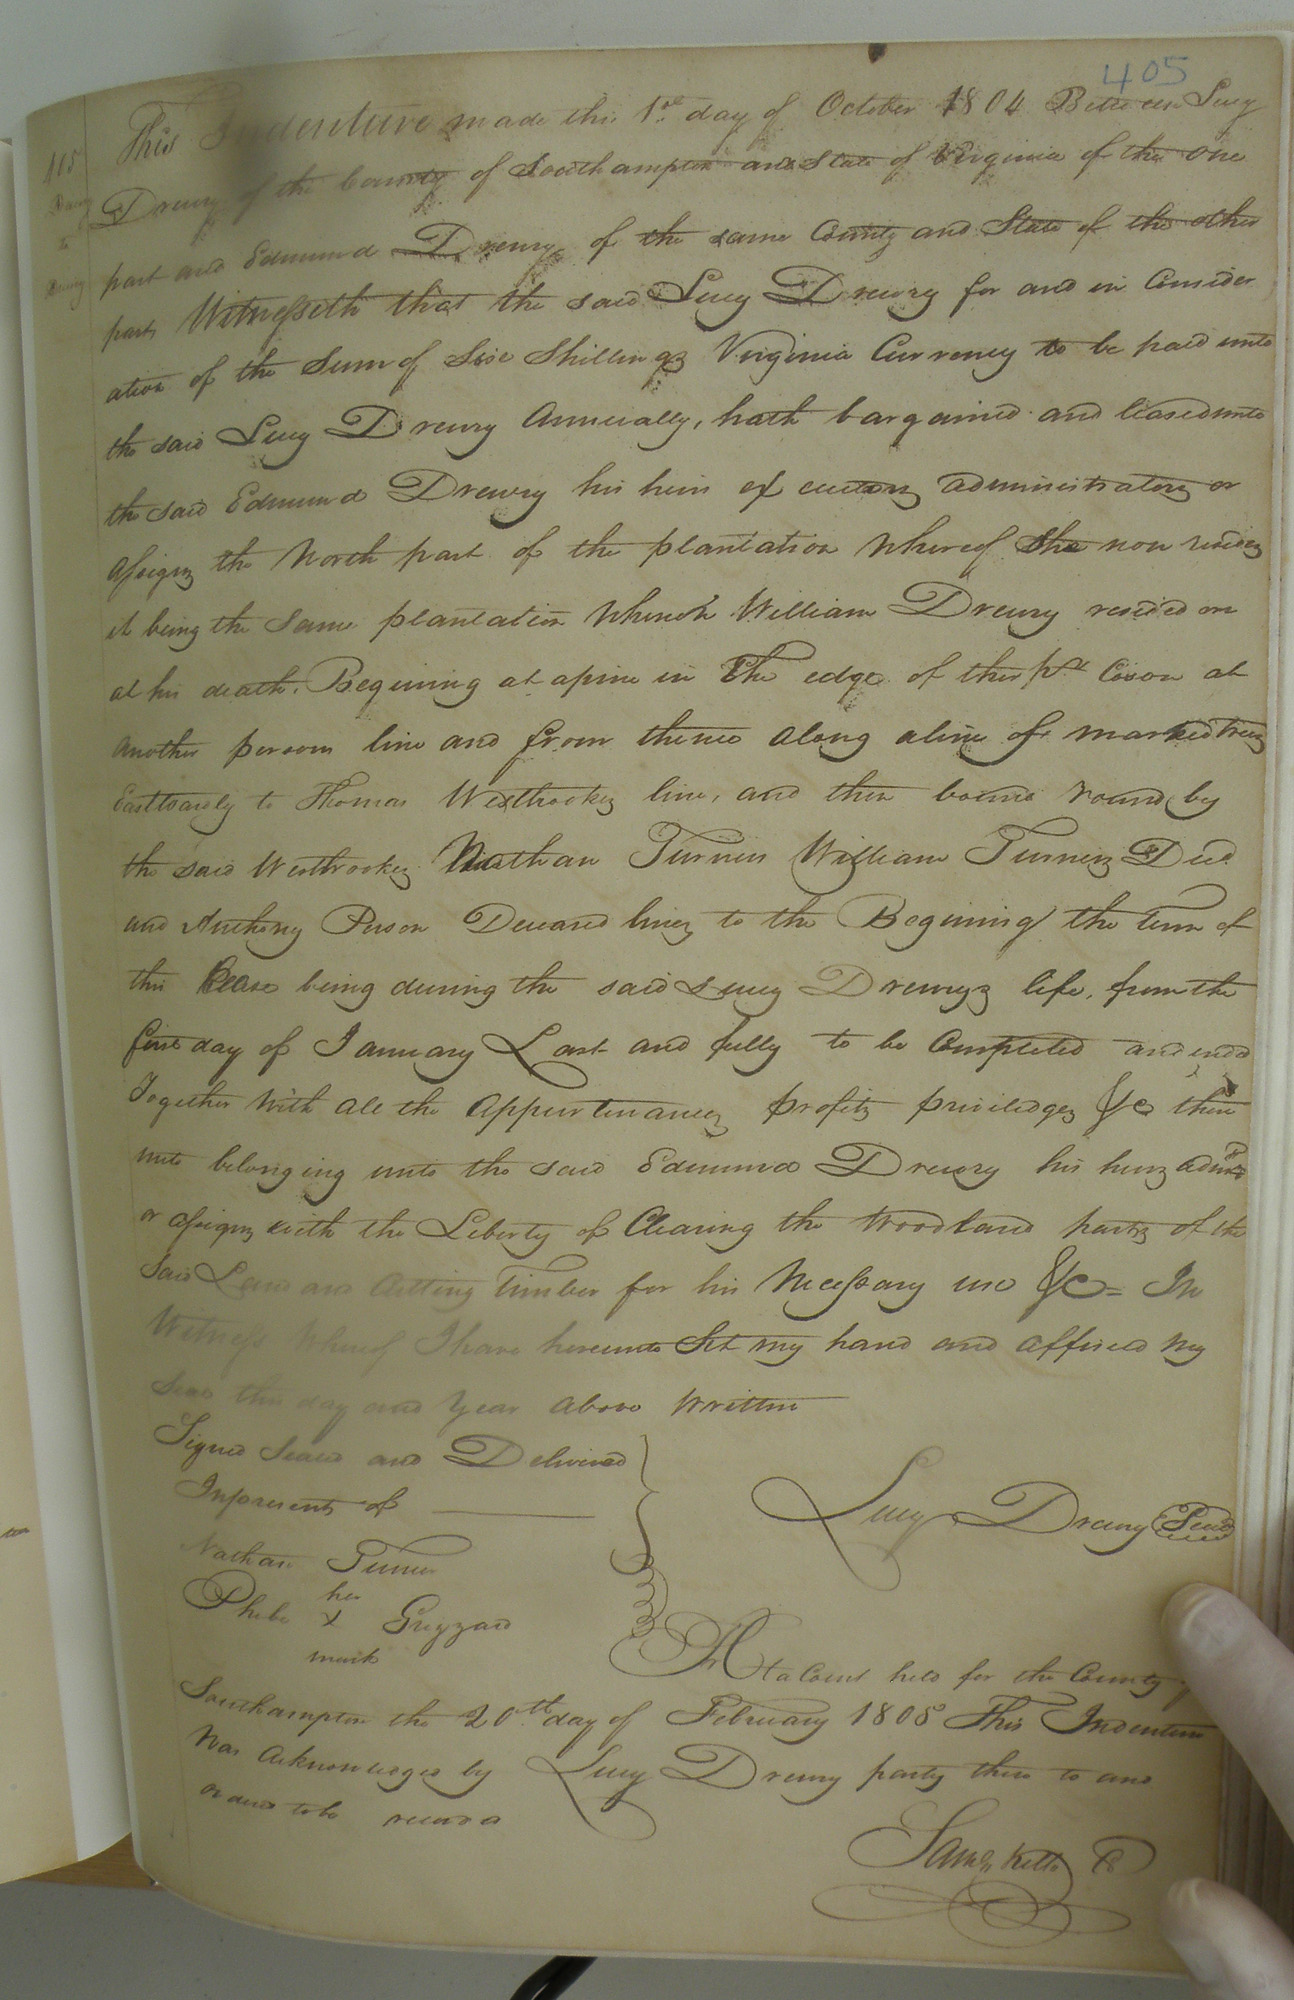 405
415
Drewry
to
Drewry
This Indenture made this 1st day of October 1804 Between Lucy
Drewry of the County of Southampton and State of Virginia of the one
part and Edmund Drewry of the same County and State of the other
part, Witnesseth that the said Lucy Drewry for and in Consider
ation of the Sum of Six Shillings Virginia Currency to be paid unto
the said Lucy Drewry Annually, hath bargained and leased unto
the said Edmund Drewry his heirs executors administrators or
assigns the North part of the plantation Whereof She now resides
it being the Same plantation Whereon William Drewry resided on
at his death. Begining at a pine in The edge of Coson at
another persons line and from thence along a line of marked trees
Eastwardly to Thomas Westbrookes line, and then bound round by
the said Westbrookes Nathan Turners William Turners Decd
and Anthony Person Deceased lines to the Begining the term of
this Lease being during the said Lucy Drewrys life, from the
first day of January Last and fully to be Completed and ended
Together With all the Appurtenances profits priviledges &c there
unto belonging unto the said Edmund Drewry his heirs admrs
or assigns with the Liberty of Clearing the Woodland parts of the
Said Land and Cutting Timber for his Necessary use &c = In
Witness Whereof I have hereunto Set my hand and affixed my
Seal this day and Year above Written
Signed Sealed and Delivered
Inpresents of
Lucy Drewry Seal
Nathan Turner
her
Phebe X Grizzard
mark
At a Court held for the County of
Southampton the 20th day of February 1805 This Indenture
Was Acknowledged by Lucy Drewry party there to and
ordered to be recorded
Saml Kello C